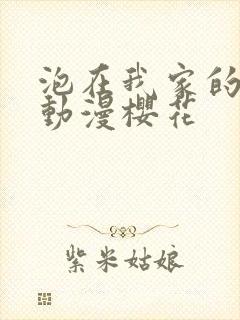 泡在我家的
動漫櫻花
紫米姑娘